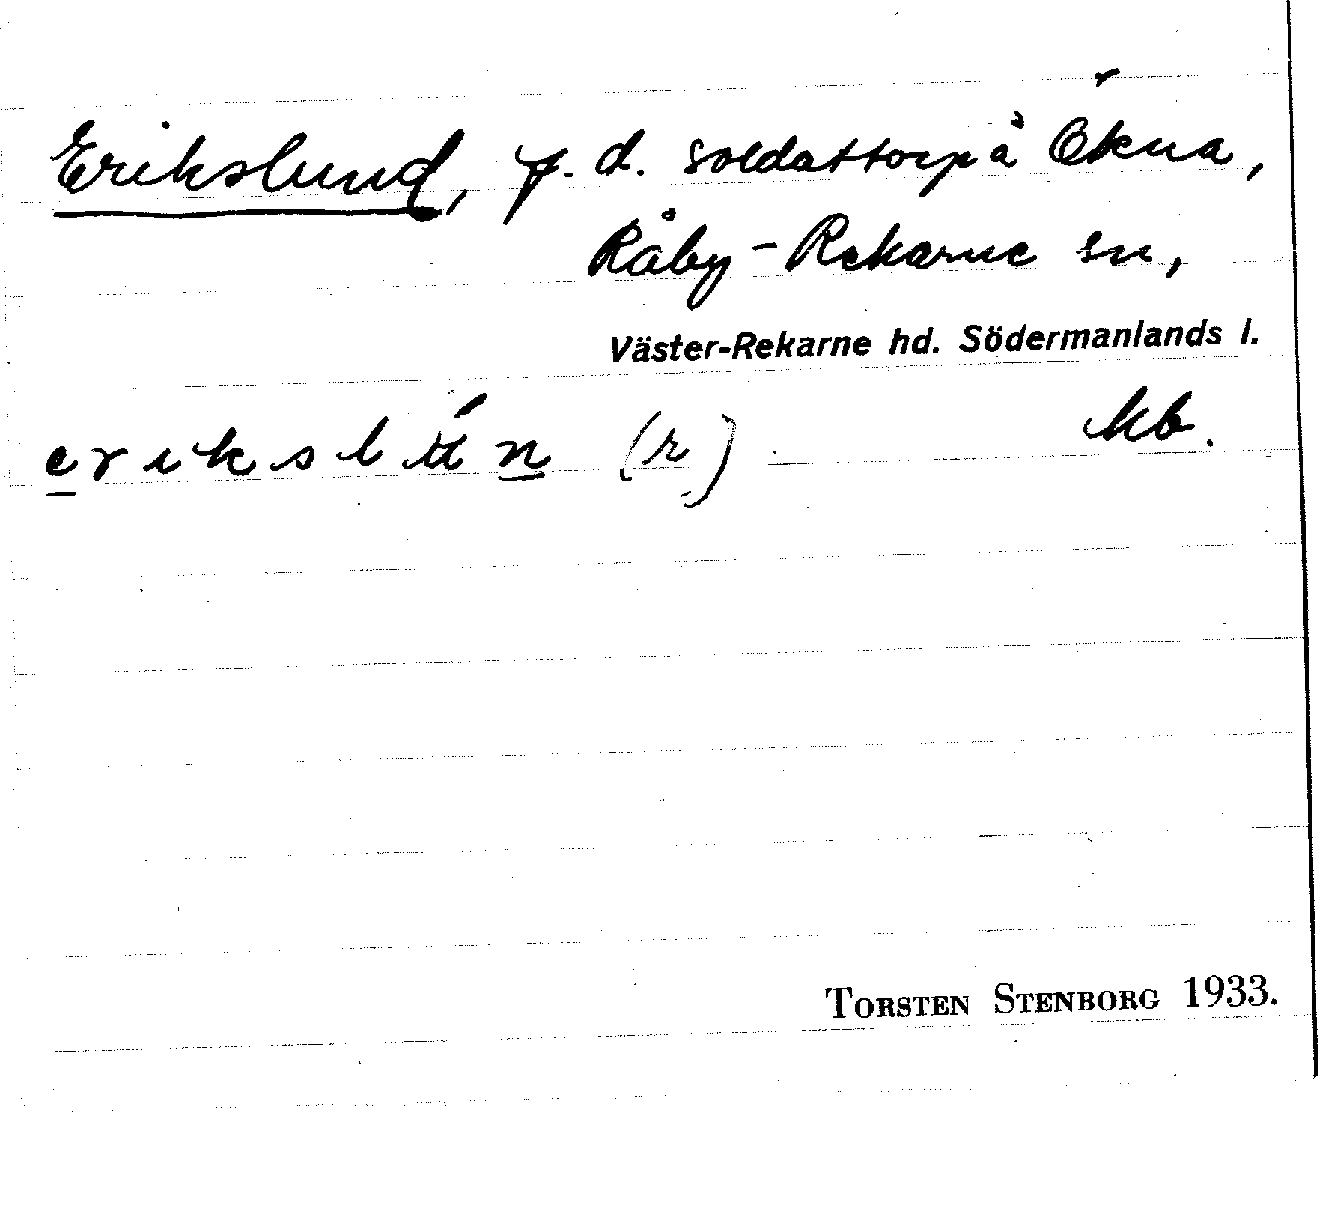 Erikslund, f. d. soldattorp å Ökna,
Råby-Rekarne sn,
Väster-Rekarne hd. Södermanlands l.
erikslún (r)
kb.
TORSTEN STENBORG 1933.